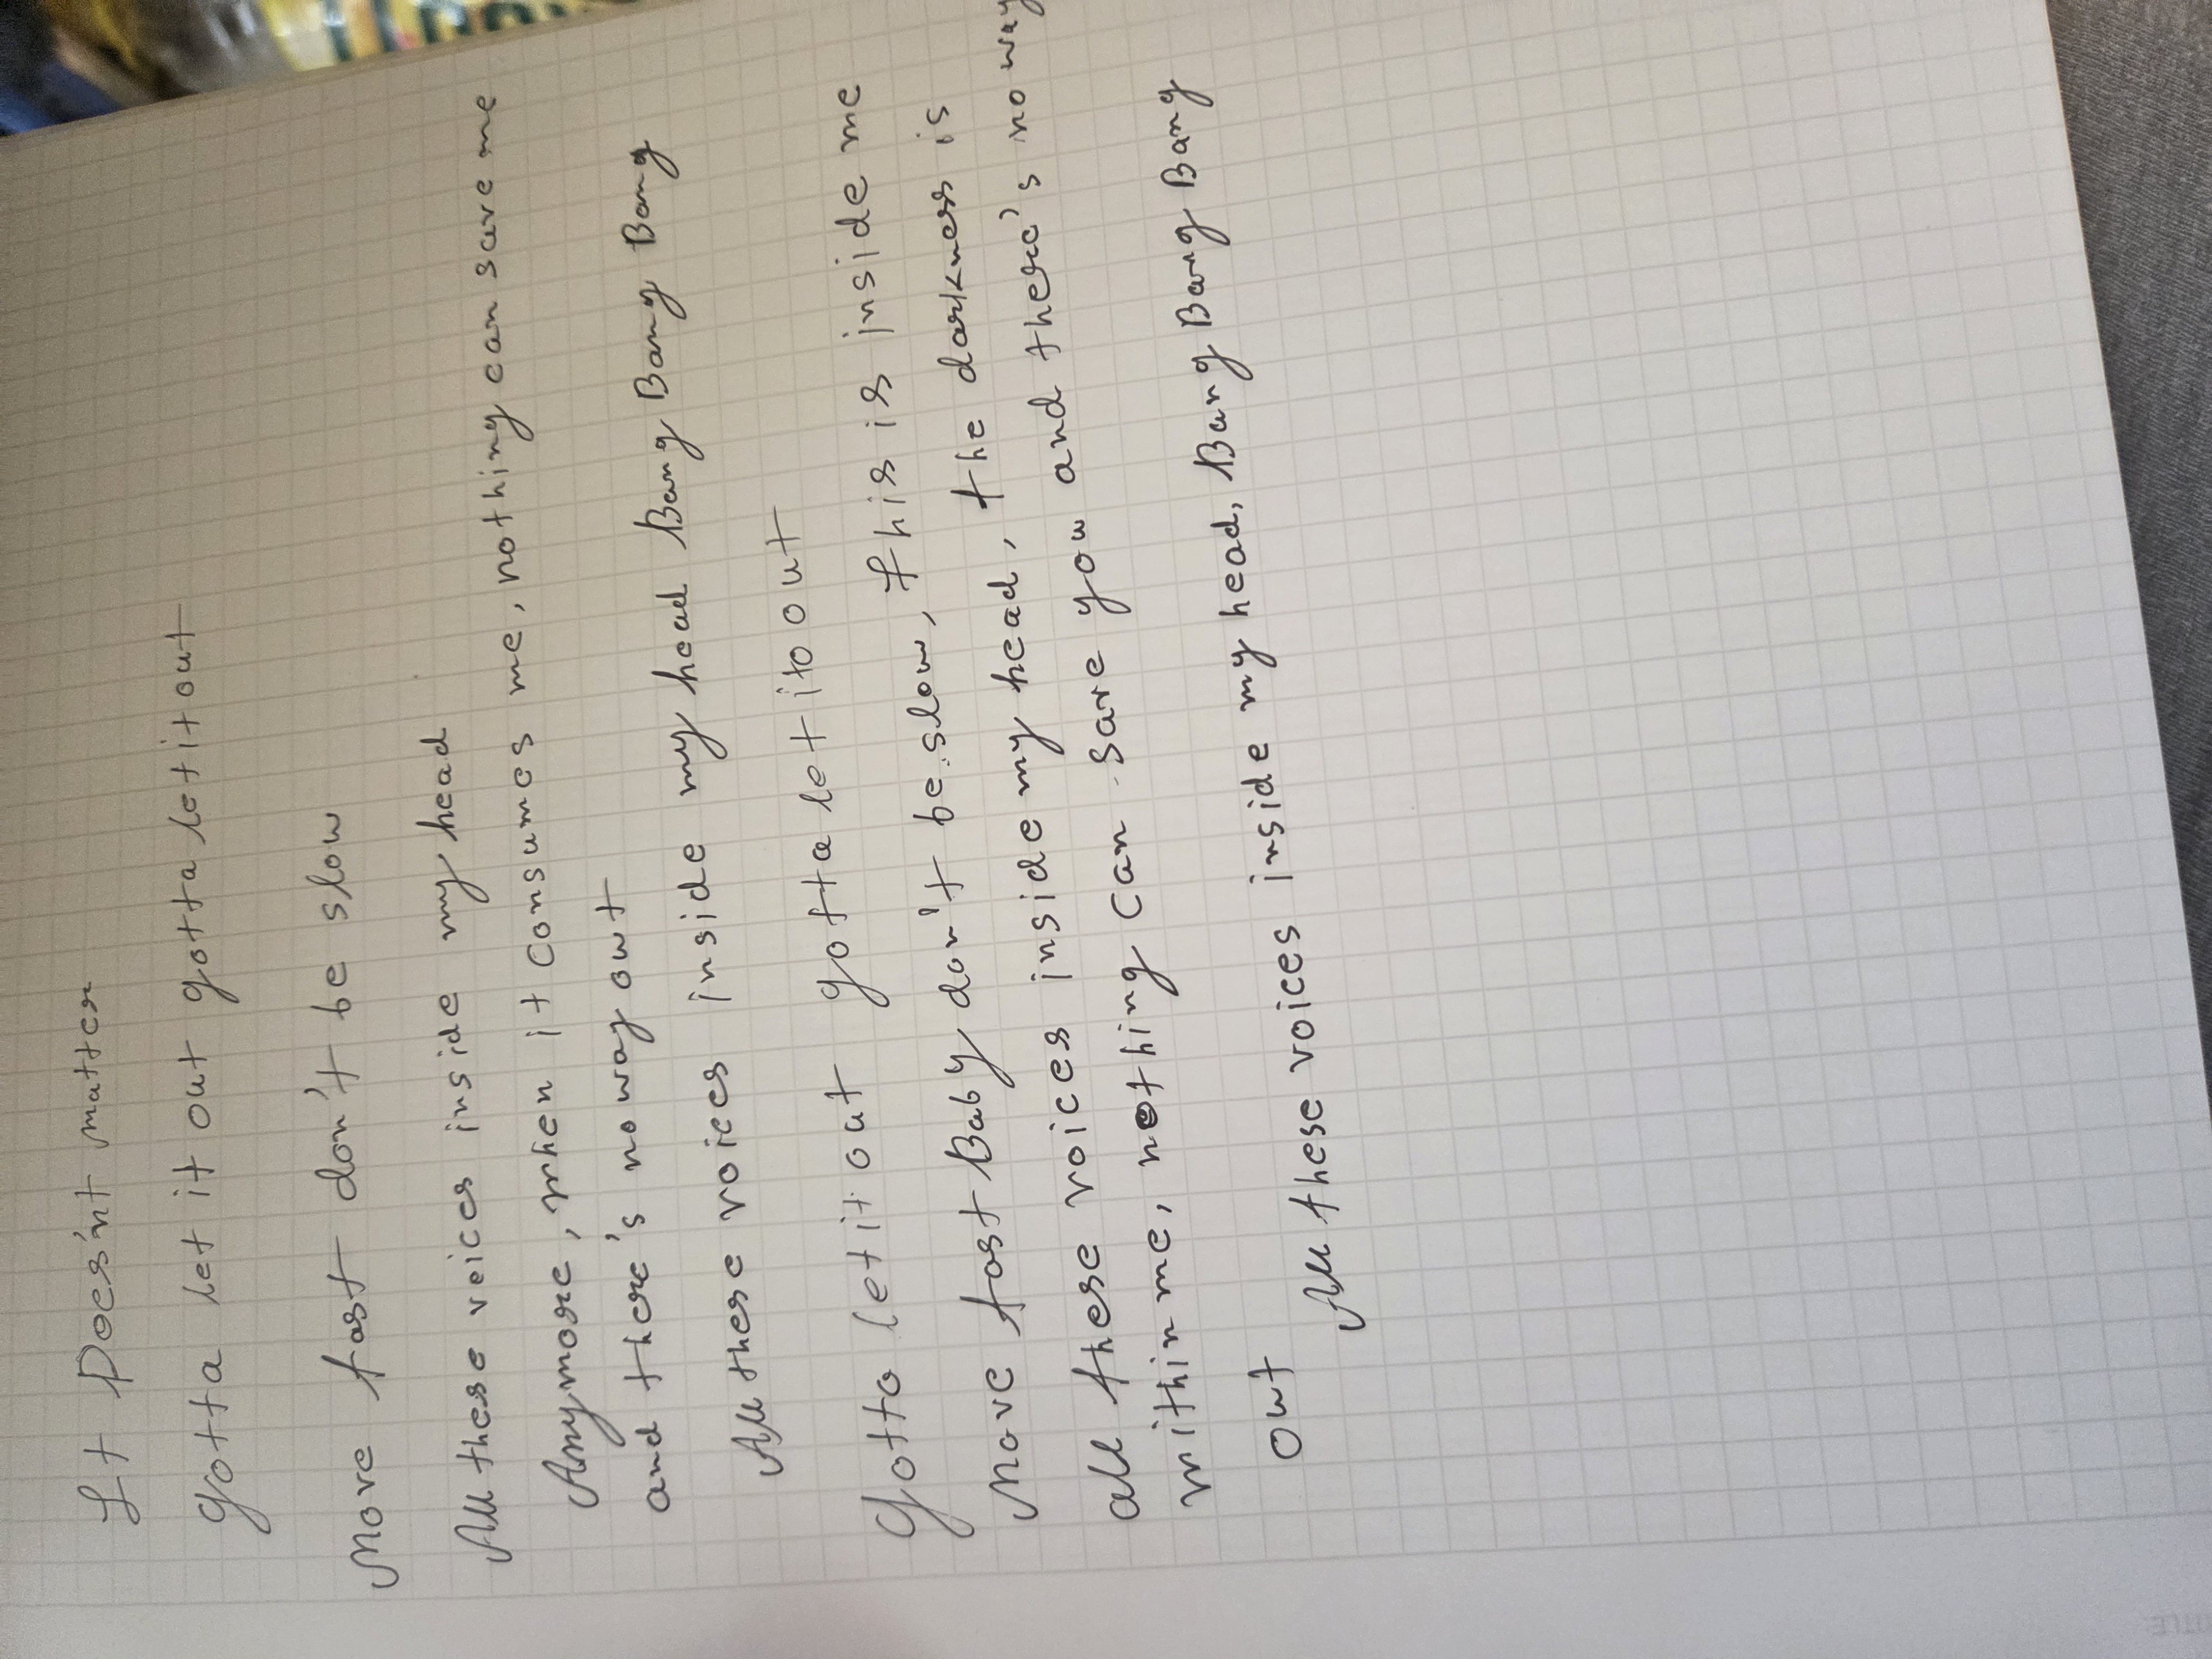 It Does'nt matter
Gotta let it out gotta let it out
Move fast don't be slow
All these voices inside my head
Anymore, when it consumes me, nothing can save me
and there's no way out
All these voices inside my head Bang Bang Bang
Gotta let it out gotta let ito out
Move fast Baby don't be slow, this is inside me
all these voices inside my head, the darkness is
within me, nothing can save you and there's no way
out
All these voices inside my head, Bang Bang Bang